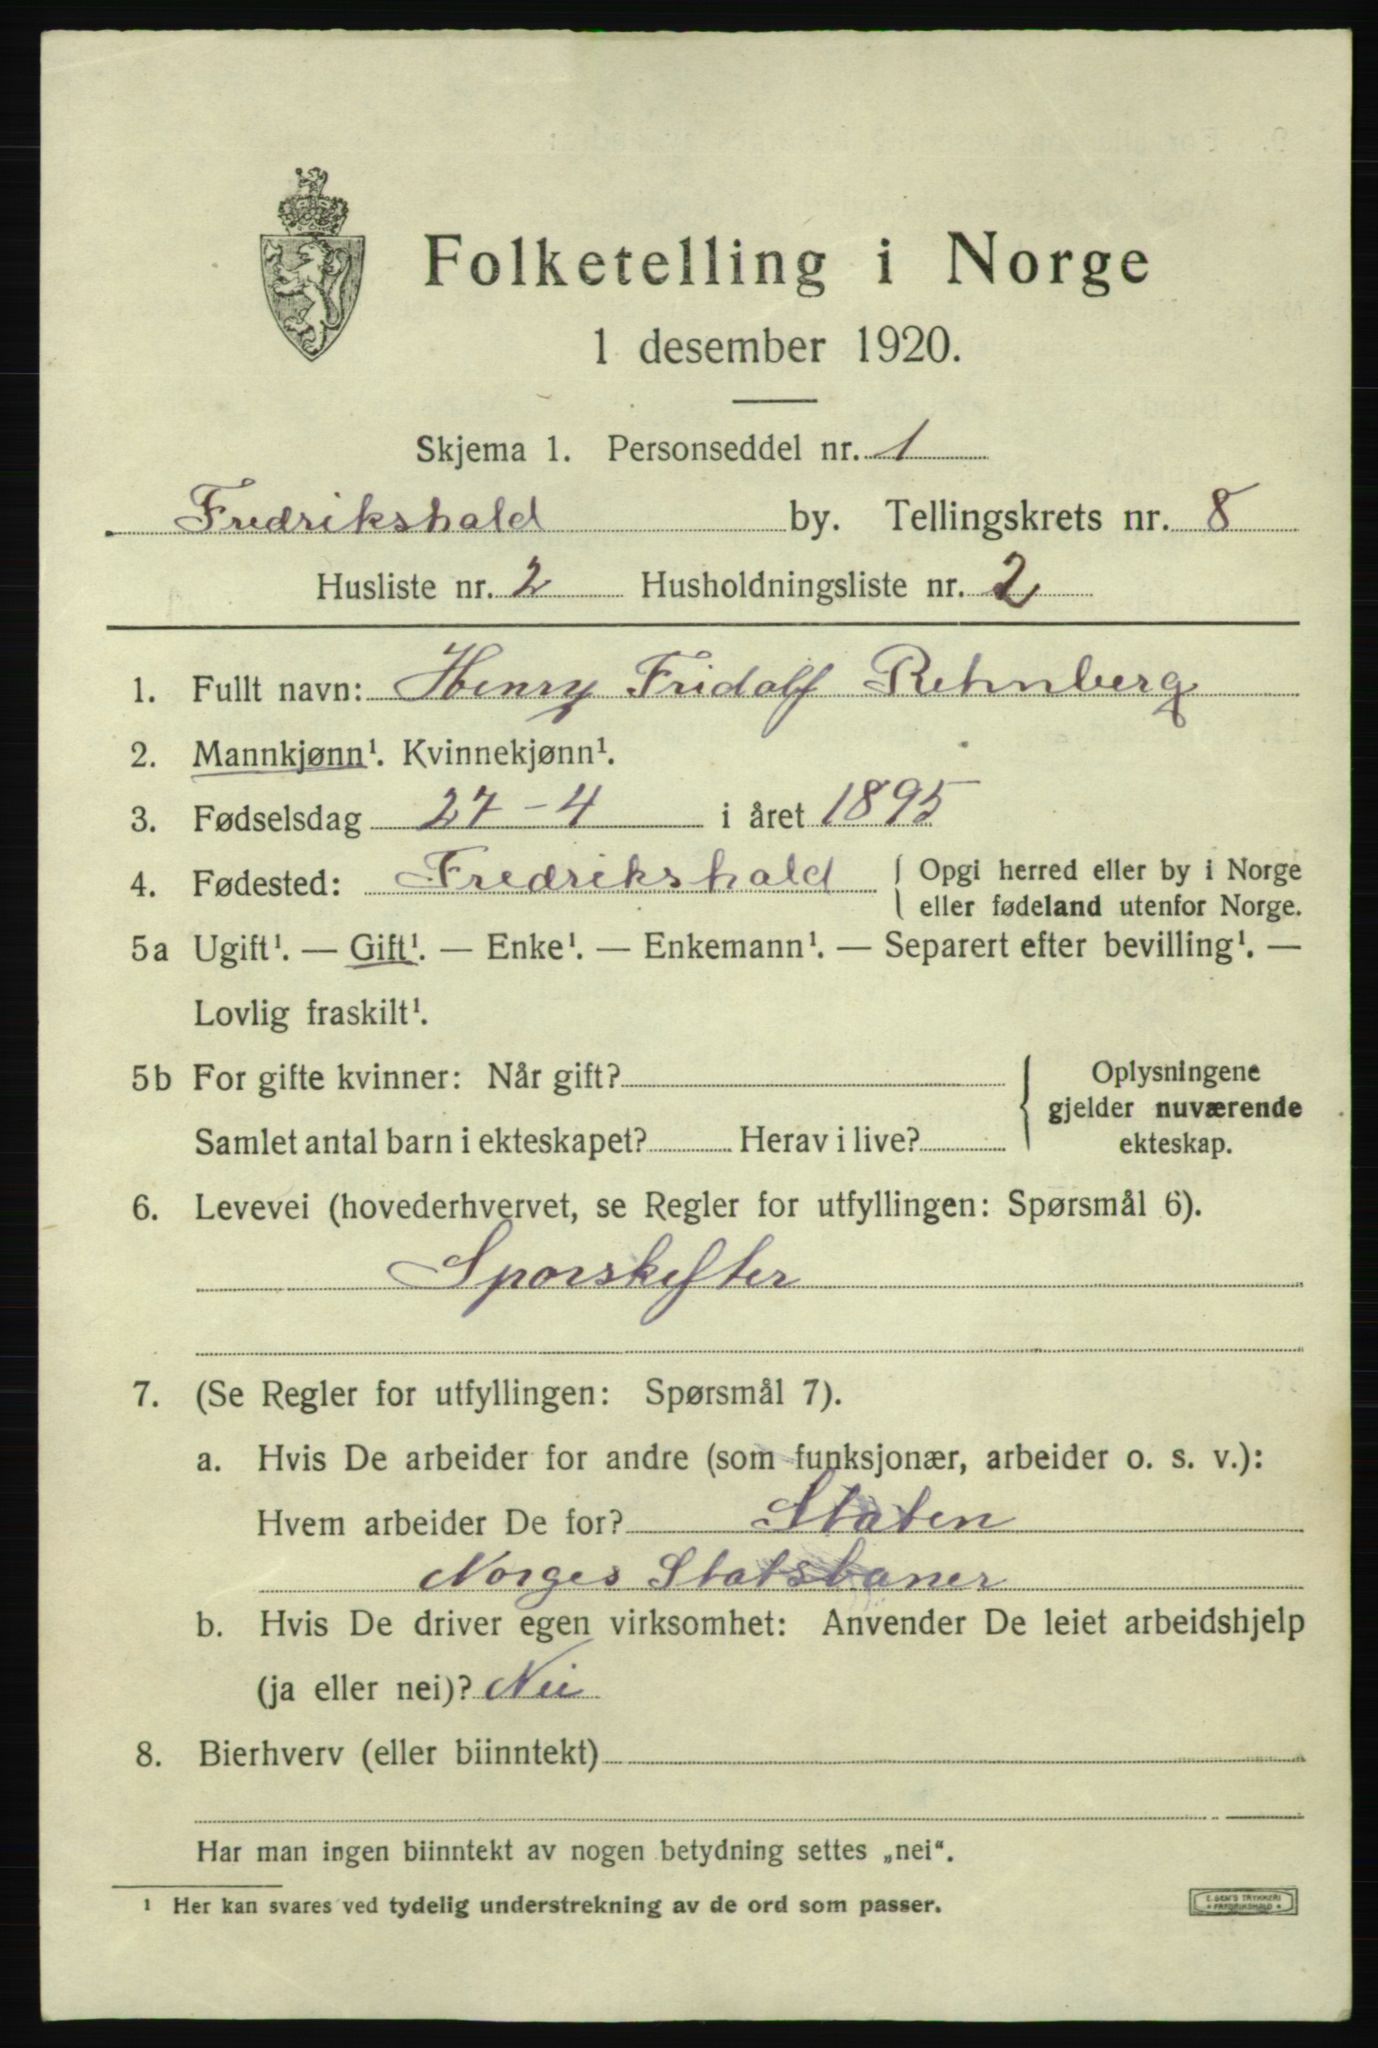 Folketelling i Norge
1 desember 1920.
Skjema 1. Personseddel nr. 1
Fredrikshald by. Tellingskrets nr. 8
Husliste nr. 2 Husholdningsliste nr. 2
1. Fullt navn: Henry Fridolf Rehnberg
2. Mannkjønn¹. Kvinnekjønn¹.
3. Fødselsdag 27-4 i året 1895
4. Fødested: Fredrikshald { Opgi herred eller by i Norge
eller fødeland utenfor Norge.
5a Ugift¹. — Gift¹. — Enke¹. — Enkemann¹. — Separert efter bevilling¹. —
Lovlig fraskilt¹.
5b For gifte kvinner: Når gift?
Samlet antal barn i ekteskapet? Herav i live?
{ Oplysningene
gjelder nuværende
ekteskap.
6. Levevei (hovederhvervet, se Regler for utfyllingen: Spørsmål 6).
Sporskifter
7. (Se Regler for utfyllingen: Spørsmål 7).
a. Hvis De arbeider for andre (som funksjonær, arbeider o. s. v.):
Hvem arbeider De for? Staten
Norges Statsbaner
b. Hvis De driver egen virksomhet: Anvender De leiet arbeidshjelp
(ja eller nei)? Nei
8. Bierhverv (eller biinntekt)
Har man ingen biinntekt av nogen betydning settes „nei“.
¹ Her kan svares ved tydelig understrekning av de ord som passer.
TRYKKERI
FREDRIKSHALD